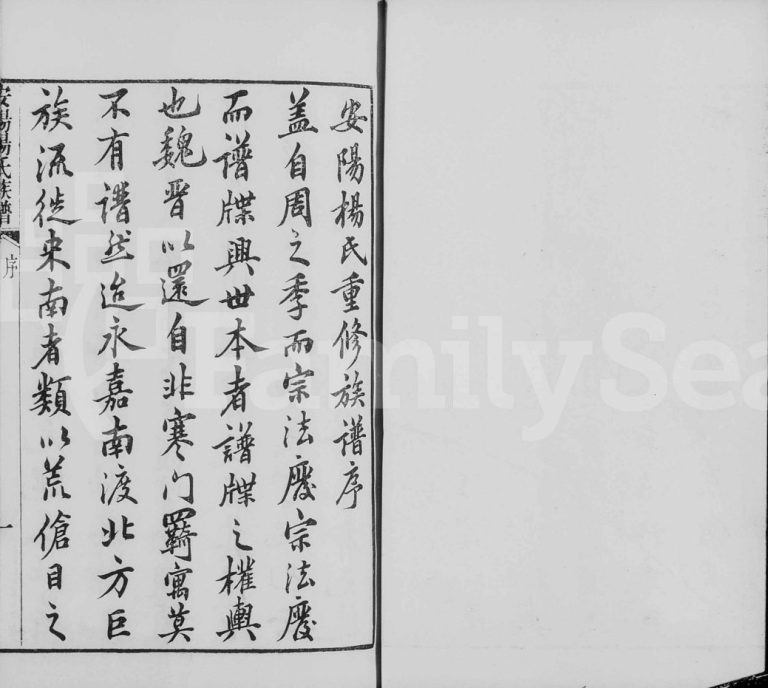 安陽楊氏重修族譜序
盖自周之季而宗法廢宗法廢
而譜牒興世本者譜牒之權輿
也魏晋以還自非寒门羈寓莫
不有譜然迨永嘉南渡北方巨
族流徙来南者類以荒傖目之
安陽楊氏族譜
序
一
FamilySea